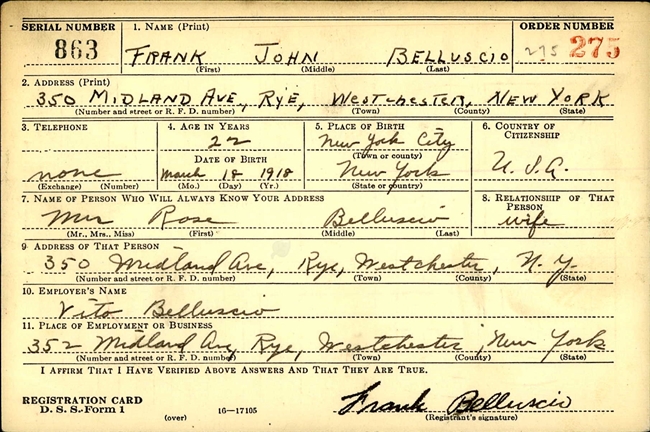 SERIAL NUMBER 1. NAME (Print) ORDER NUMBER
863 FRANK JOHN BELLUSCIO 275 275
(First) (Middle) (Last)
2. ADDRESS (Print)
350 MIDLAND AVE, RYE, WESTCHESTER, NEW YORK
(Number and street or R. F. D. number) (Town) (County) (State)
3. TELEPHONE 4. AGE IN YEARS 5. PLACE OF BIRTH 6. COUNTRY OF CITIZENSHIP
22 New York City
DATE OF BIRTH (Town or county)
none March 18 1918 New York U.S.A.
(Exchange) (Number) (Mo.) (Day) (Yr.) (State or country)
7. NAME OF PERSON WHO WILL ALWAYS KNOW YOUR ADDRESS 8. RELATIONSHIP OF THAT PERSON
Mrs Rose Belluscio wife
(Mr., Mrs., Miss) (First) (Middle) (Last)
9 ADDRESS OF THAT PERSON
350 Midland Ave, Rye, Westchester, N.Y.
(Number and street or R. F. D. number) (Town) (County) (State)
10. EMPLOYER'S NAME
Vito Belluscio
11. PLACE OF EMPLOYMENT OR BUSINESS
352 Midland Ave, Rye, Westchester, New York
(Number and street or R. F. D. number) (Town) (County) (State)
I AFFIRM THAT I HAVE VERIFIED ABOVE ANSWERS AND THAT THEY ARE TRUE.
REGISTRATION CARD Frank Belluscio
D. S. S. Form 1 (over) 16—17105 (Registrant's signature)